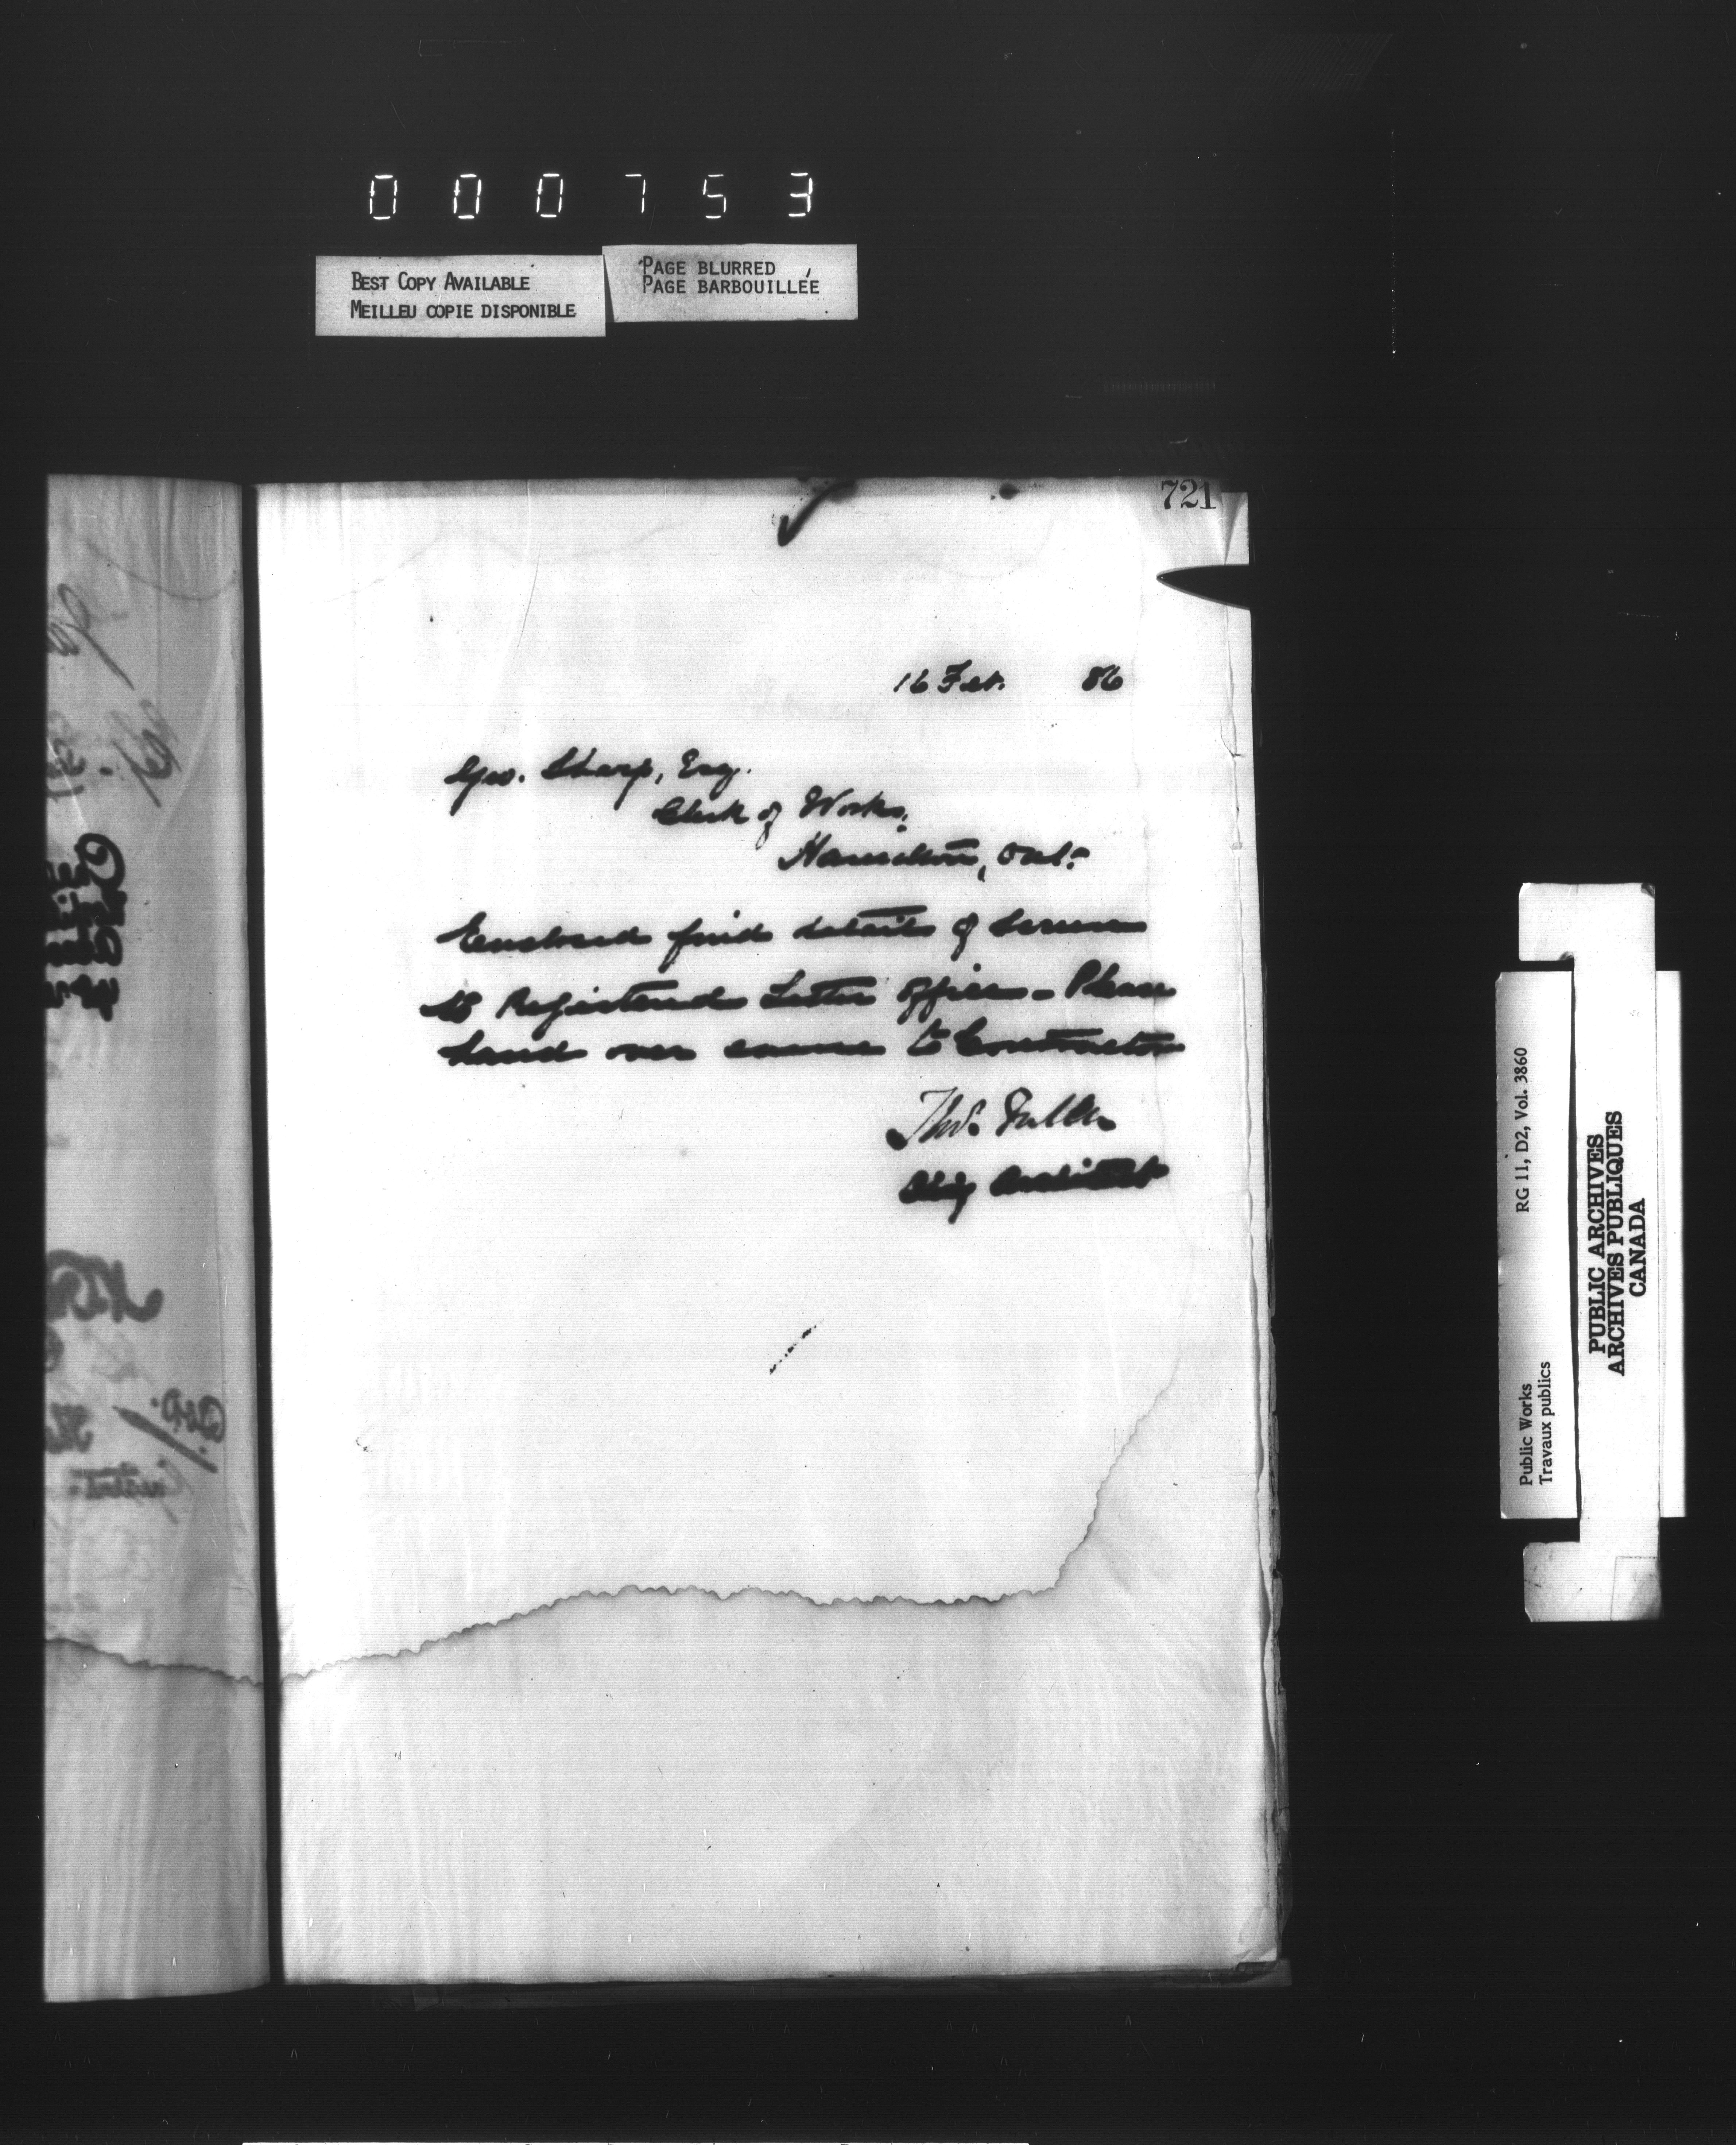 000753
BEST COPY AVAILABLE
MEILLEU COPIE DISPONIBLE
PAGE BLURRED
PAGE BARBOUILLÉE
721
16 Feb. 86
Geo. Sharp, Esq.
Clerk of Works,
Hamilton, Ont.
Enclosed find details of Screen
to Registered Letter Office - Please
hand over same to Contractor
Thos. Fuller
Chief Architect
Public Works
Travaux publics
RG 11, D2, Vol. 3860
PUBLIC ARCHIVES
ARCHIVES PUBLIQUES
CANADA